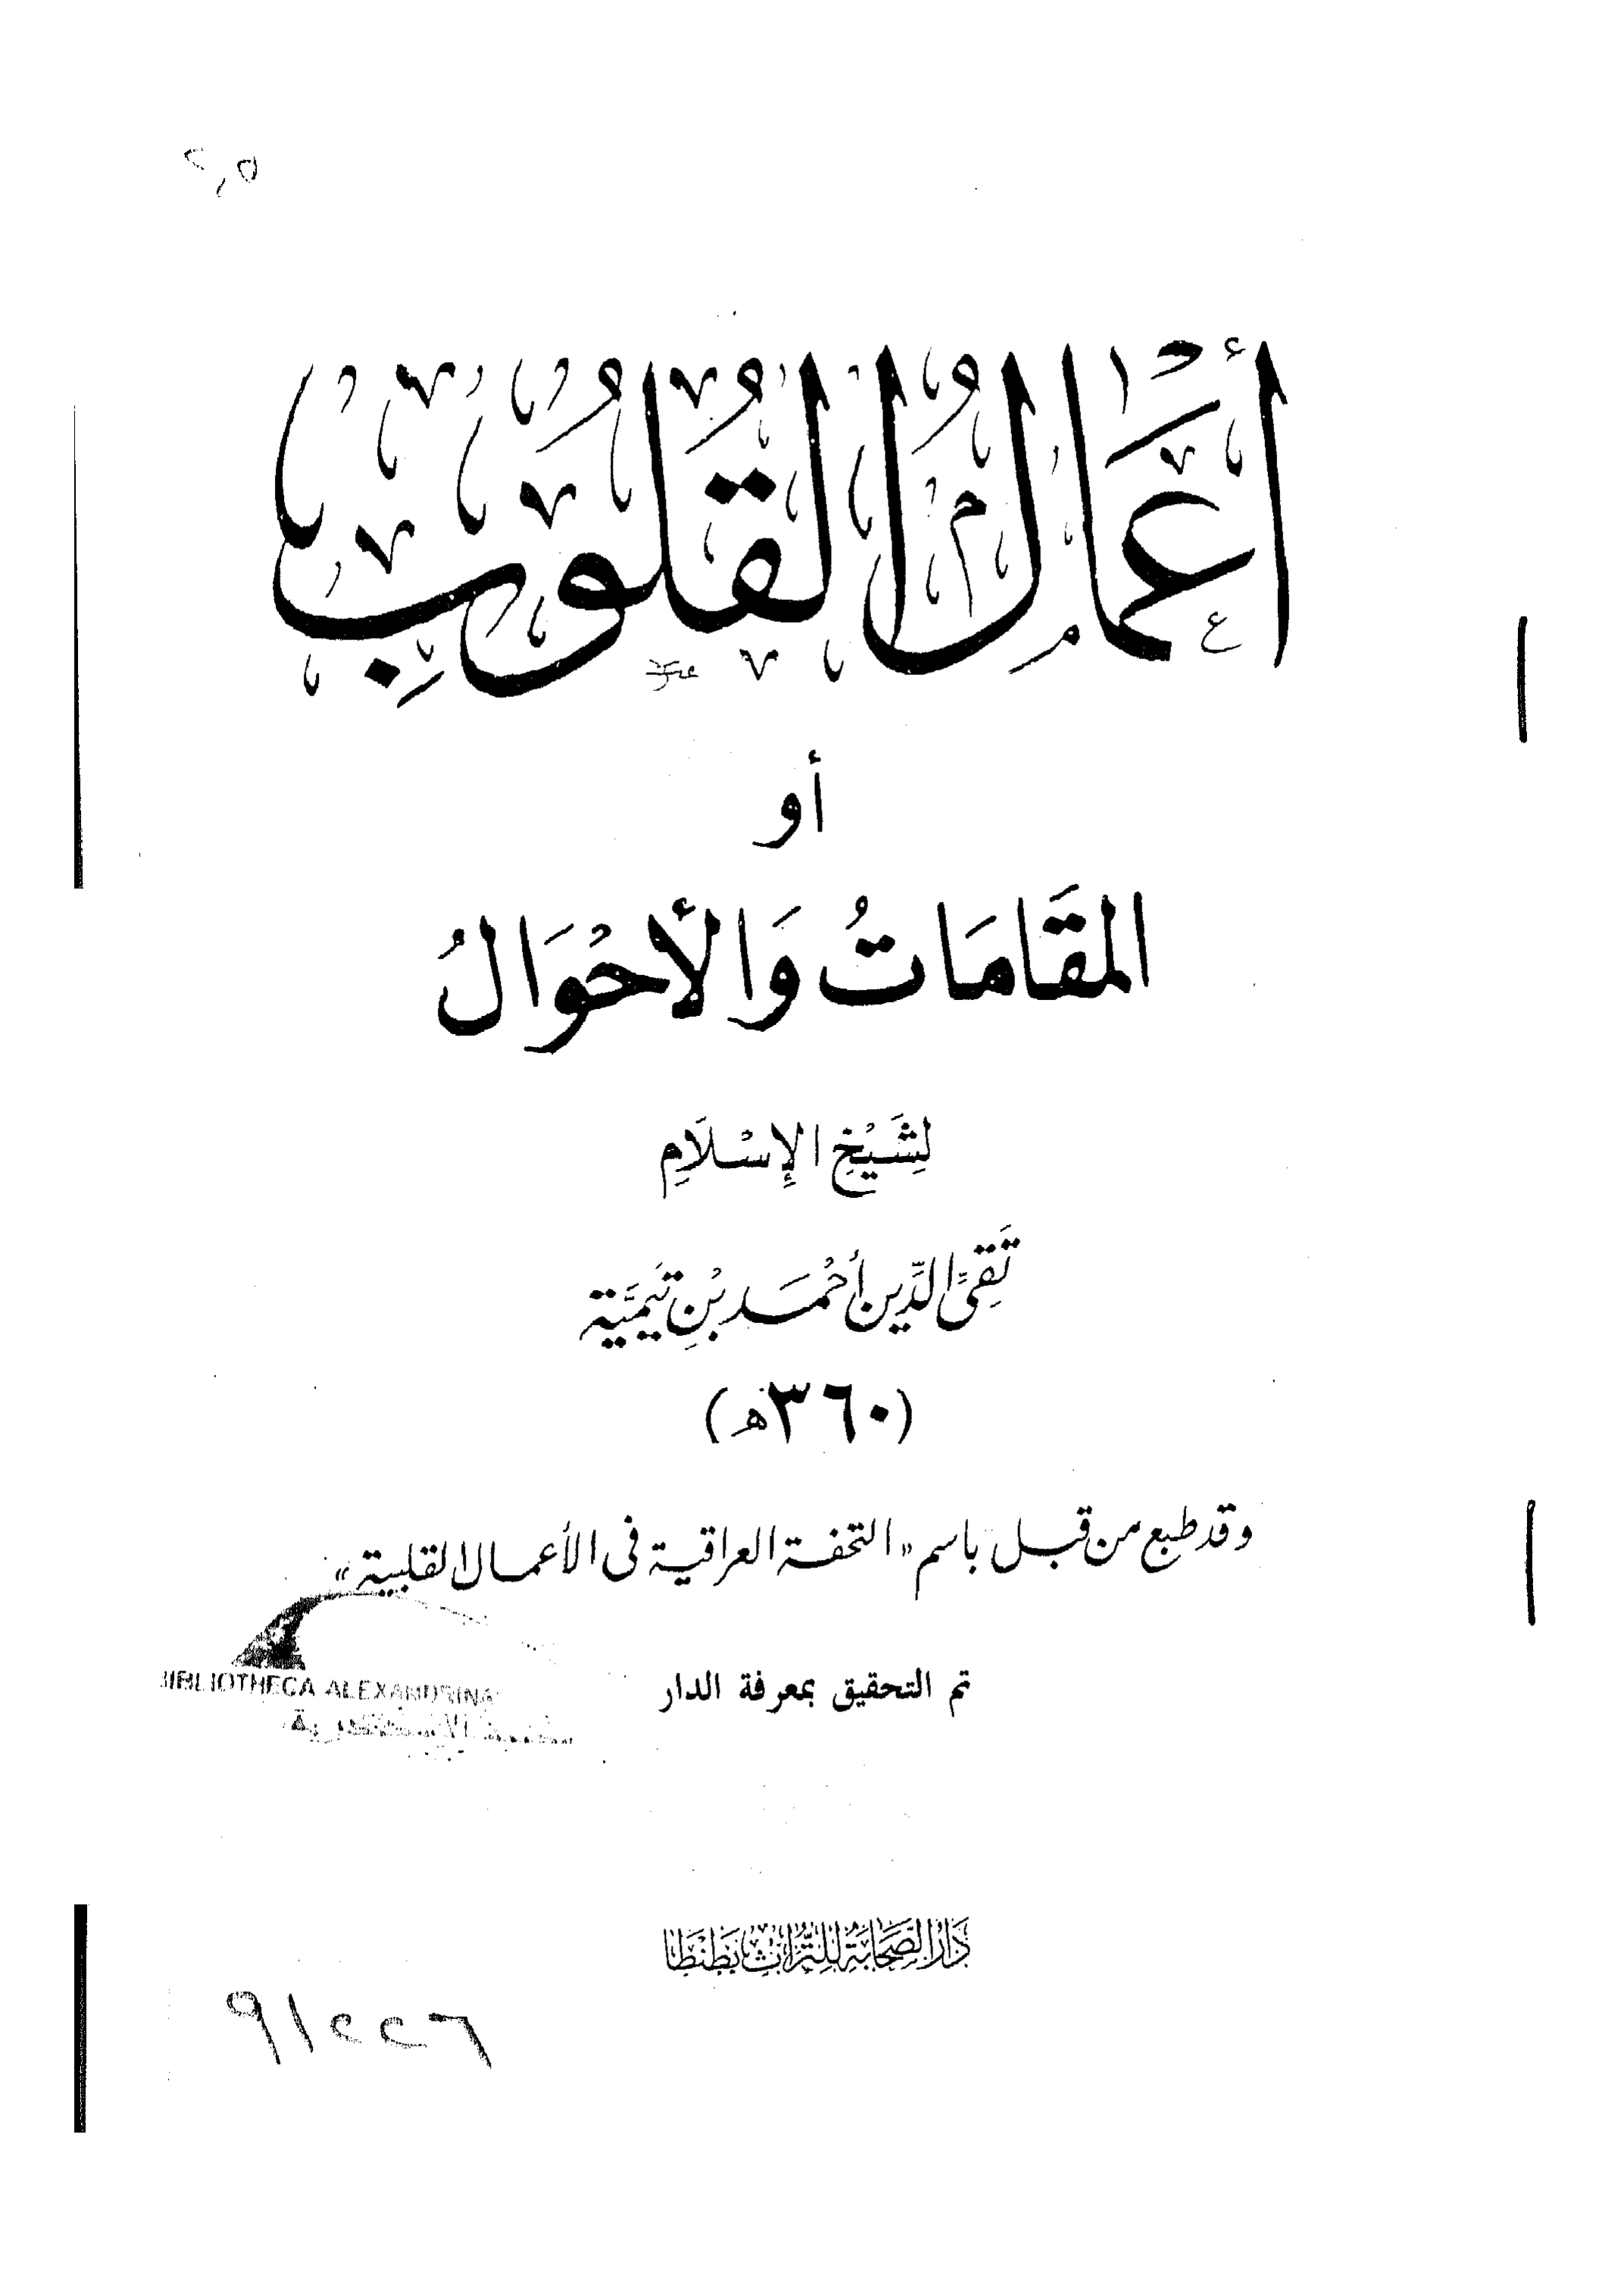 ٢,٥
أَعْمَالُ القُلُوبِ
أو
المقَامَاتُ وَالأَحْوَالُ
لِشَيْخِ الإِسْلَامِ
تَقِىِّ الدِّين أَحْمَد بْنِ تَيْمِيَّة
(٣٦٠هـ)
وقد طبع من قبل باسم «التحفة العراقية فى الأعمال القلبية»
تم التحقيق بمعرفة الدار
BIBLIOTHECA ALEXANDRINA
دَارُ الصَّحَابَةِ لِلتُّرَاثِ بِطَنْطَا
٩١٢٢٦